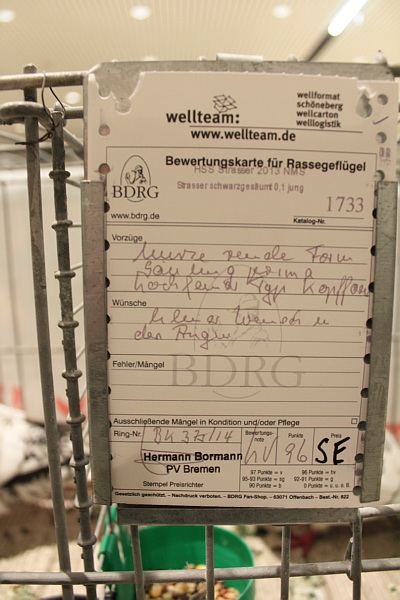 wellteam:
www.wellteam.de
wellformat
schöneberg
wellcarton
welllogistik
BDRG
www.bdrg.de
Bewertungskarte für Rassegeflügel
HSS Strasser 2013 NMS
Strasser schwarzgesäumt 0,1 jung
1733
Katalog-Nr.
Vorzüge
Kurze runde Form
Saumung prima
hochfeine Typ Kopfform
Wünsche
der Flügel
Fehler/Mängel
BDRG
Ausschließende Mängel in Kondition und/oder Pflege
Ring-Nr.
Bewertungs-
note
Punkte
hv 96 SE
Hermann Bormann
PV Bremen
Stempel Preisrichter
97 Punkte = v 96 Punkte = hv
95-93 Punkte = sg 92-91 Punkte = g
90 Punkte = b 0 Punkte = u, o. B.
Gesetzlich geschützt. – Nachdruck verboten. – BDRG Fan-Shop. – 63071 Offenbach – Best.-Nr. 822